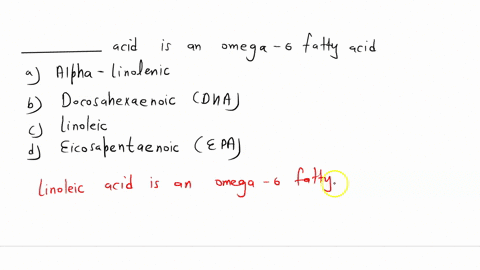 ________ acid is an omega-6 fatty acid
a) Alpha-linolenic
b) Docosahexaenoic (DHA)
c) linoleic
d) Eicosapentaenoic (EPA)
linoleic acid is an omega-6 fatty.